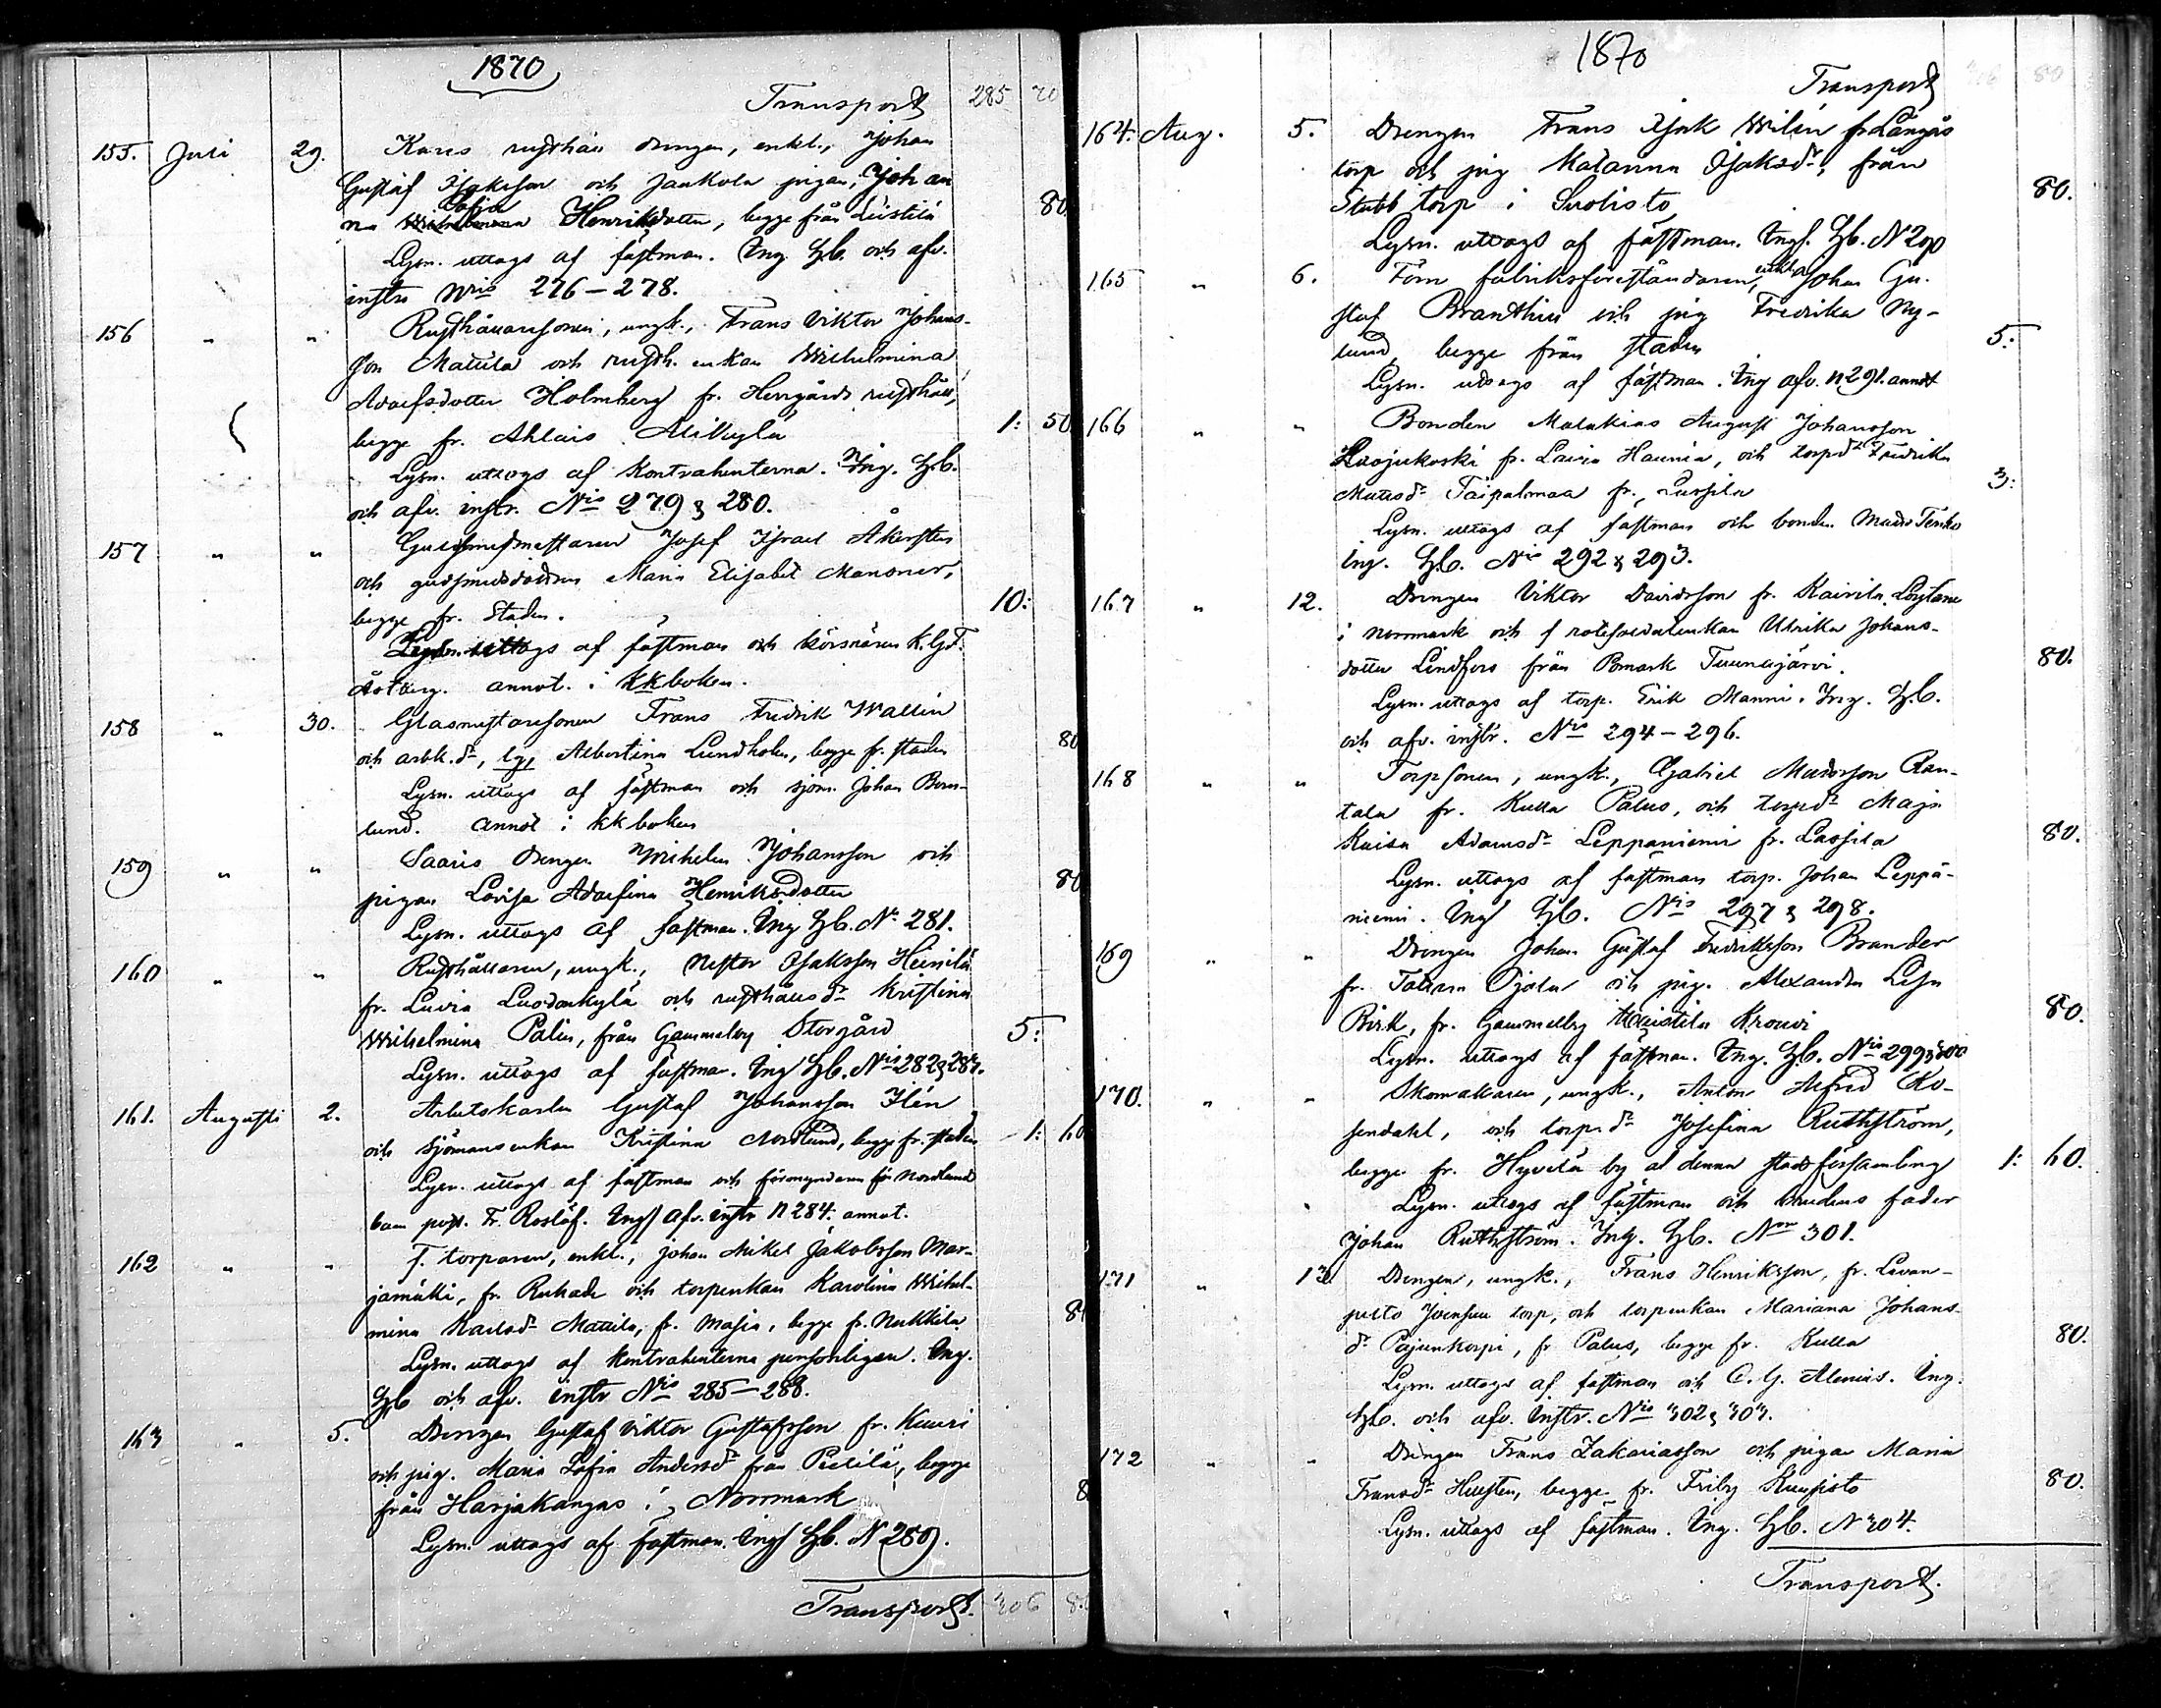 1870
Transport 285 20
155. Juli 29. Karis rusthåll drängen, enkl., Johan
Gustaf Isaksson och Jankola pigan, Johan
na Sofia Henriksdotter, begge från Leistilä 80.
Lysn. uttogs af fästman. Ing. Hb. och afv.
instr Nris 276–278.
156 " " Rusthållaresonen, ungk., Frans Viktor Johans-
son Mattila och rusth. enkan Wilhelmina
Adolfsdotter Holmberg fr. Herrgårds rusthåll,
begge fr. Ahlais Alikylä 1: 50
Lysn. uttogs af kontrahenterna. Ing. Hb.
och afv. instr. Nis 279 & 280.
157 " " Guldsmedmästaren Josef Israel Åkersten
och guldsmedsdottren Maria Elisabet Mansner,
begge fr. Staden. 10:
Lysn. uttogs af fästman och körsnären K. G. F.
Åstberg. annot. i kkboken.
158 " 30. Glasmästaresonen Frans Fredrik Wallin
och arbk. dr, Albertina Lundholm, begge fr. staden 80
Lysn. uttogs af fästman och sjöm. Johan Bom-
lund. annot i kkboken
159 " " Saaris drengen Wilhelm Johansson och
pigan Lovisa Adolfina Henriksdotter 80
Lysn. uttogs af fästman. Ing Hb. Nr 281.
160 " " Rusthållaren, ungk., Nestor Isaksson Heinilä
fr. Luvia Luodonkylä och rusthålls dr Kristina
Wilhelmina Palin, från Gammelby Storgård 5:
Lysn. uttogs af fästman. Ing Hb. Nris 282 & 283.
161. Augusti 2. Arbetskarlen Gustaf Johansson Ilén
och sjömansenkan Kristina Nordlund, begge fr. staden 1: 60
Lysn. uttogs af fästman och förmyndaren för Nordlunds
barn Fr. Roslöf. Ing afv. instr N 284. annot.
162 " " F. torparen, enkl., Johan Mikel Jakobsson Mar-
jamäki, fr. Ruhade och torpenkan Karolina Wilhel-
mina Karlsdr Mattila, fr. Masia, begge fr. Nakkila 80
Lysn. uttogs af kontrahenterna personligen. Ing.
Hb och afv. instr Nris 285–288.
163 " 5. Drengen Gustaf Viktor Gustafsson fr. Kauri
och pig. Maria Sofia Andersdr från Pietilä, begge
från Harjakangas i Norrmark 8
Lysn. uttogs af fästman. Ing Hb. N 289.
Transport. 306 80
1870
Transport 306 80
164. Aug. 5. Drengen Frans Isak Wilén fr Långås
torp och pig Katarina Isaksdr, från
Stubb torp i Suolisto 80.
Lysn. uttogs af fästman. Ing. Hb. N 290
165 " 6. Förn fabriksföreståndaren, enkl. Johan Gu-
staf Branthin och pig Fredrika Ny-
lund, begge från staden 5:
Lysn. uttogs af fästman. Ing afv. n 291. annot
166 " " Bonden Malakias August Johansson
Haojukoski fr. Lavia Haunia, och torpdr Fredrika
Mattsdr Taipalmaa fr. Lassila 3:
Lysn. uttogs af fästman och bonden Matts
Ing. Hb. Nris 292 & 293.
167 " 12. Drengen Viktor Davidsson fr. Kairila Löytane
i Norrmark och f rotesoldatenkan Ulrika Johans-
dotter Lindfors från Pomark Tuunajärvi. 80.
Lysn. uttogs af torp. Erik Manni. Ing. Hb.
och afv. instr. Nris 294–296.
168 " " Torpsonen, ungk., Gabriel Mattsson Ran-
tala fr. Kulla Palus, och torpdr Maja
Kaisa Adamsdr Leppäniemi fr. Lassila 80.
Lysn. uttogs af fästman torp. Johan Leppä-
niemi. Ing Hb. Nris 297 & 298.
169 " " Drengen Johan Gustaf Fredriksson Brander
fr. Tattara Ojala och pig. Alexandra Lisa
Birk, fr. Gammelby Krouvi 80.
Lysn. uttogs af fästman. Ing. Hb. Nris 299 & 300
170. " " Skomakaren, ungk., Anton Alfred Ro-
sendahl, och torp. dr Josefina Ruthström,
begge fr. Hyvelä by af denna stadsförsamling 1: 60.
Lysn. uttogs af fästman och brudens fader
Johan Ruthström. Ing. Hb. Nro 301.
171 " 13. Drengen, ungk., Frans Henriksson, fr. Levan-
pelto Joensuu torp, och torpenkan Mariana Johans-
dr Pajunkorpi, fr Palus, begge fr. Kulla 80.
Lysn. uttogs af fästman och C. G. Alenius. Ing.
Hb. och afv. Instr. Nris 302 & 303.
172 " " Drengen Frans Zakariasson och pigan Maria
Fransdr Hellsten, begge fr. Friby Kuusisto 80.
Lysn. uttogs af fästman. Ing. Hb. N 304.
Transport.